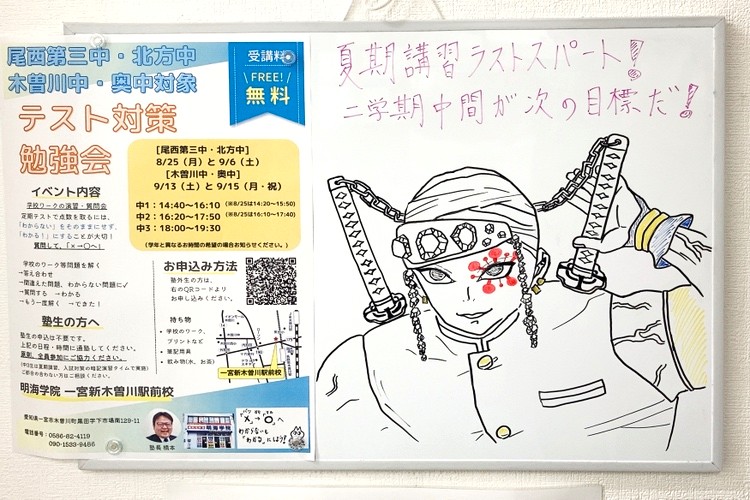 尾西第三中・北方中
木曽川中・奥中対象
受講料
FREE!
無料
テスト対策
勉強会
[尾西第三中・北方中]
8/25（月）と 9/6（土）
[木曽川中・奥中]
9/13（土）と 9/15（月・祝）
中1：14:40～16:10（※8/25は14:20～15:50）
中2：16:20～17:50（※8/25は16:10～17:40）
中3：18:00～19:30
（学年と異なるお時間の希望の場合お知らせください。）
イベント内容
学校ワークの演習・質問会
定期テストで点数を取るには、
「わからない」をそのままにせず、
「わかる！」にすることが大切！
質問して、「×→〇へ」
学校のワーク等問題を解く
→答え合わせ
→間違えた問題、わからない問題に✓
→質問する →わかる
→もう一度解く →できた！
お申込み方法
塾外生の方は、
右のQRコードより
お申し込みください。
持ち物
・学校のワーク、
プリントなど
・筆記用具
・飲み物(水、お茶)
一宮新木曽川駅前校
塾生の方へ
塾生の申込は不要です。
上記の日程・時間に通塾してください。
原則、全員参加にご協力ください。
ご都合の合わない方はご相談ください。
明海学院 一宮新木曽川駅前校
愛知県一宮市木曽川町黒田字下市場南129-11
電話番号：0586-82-4119
090-1533-9486
塾長 橋本
明海学院
"×"→"〇"へ
わからないも
"わかる"にしよう!
夏期講習ラストスパート!
二学期中間が次の目標だ!